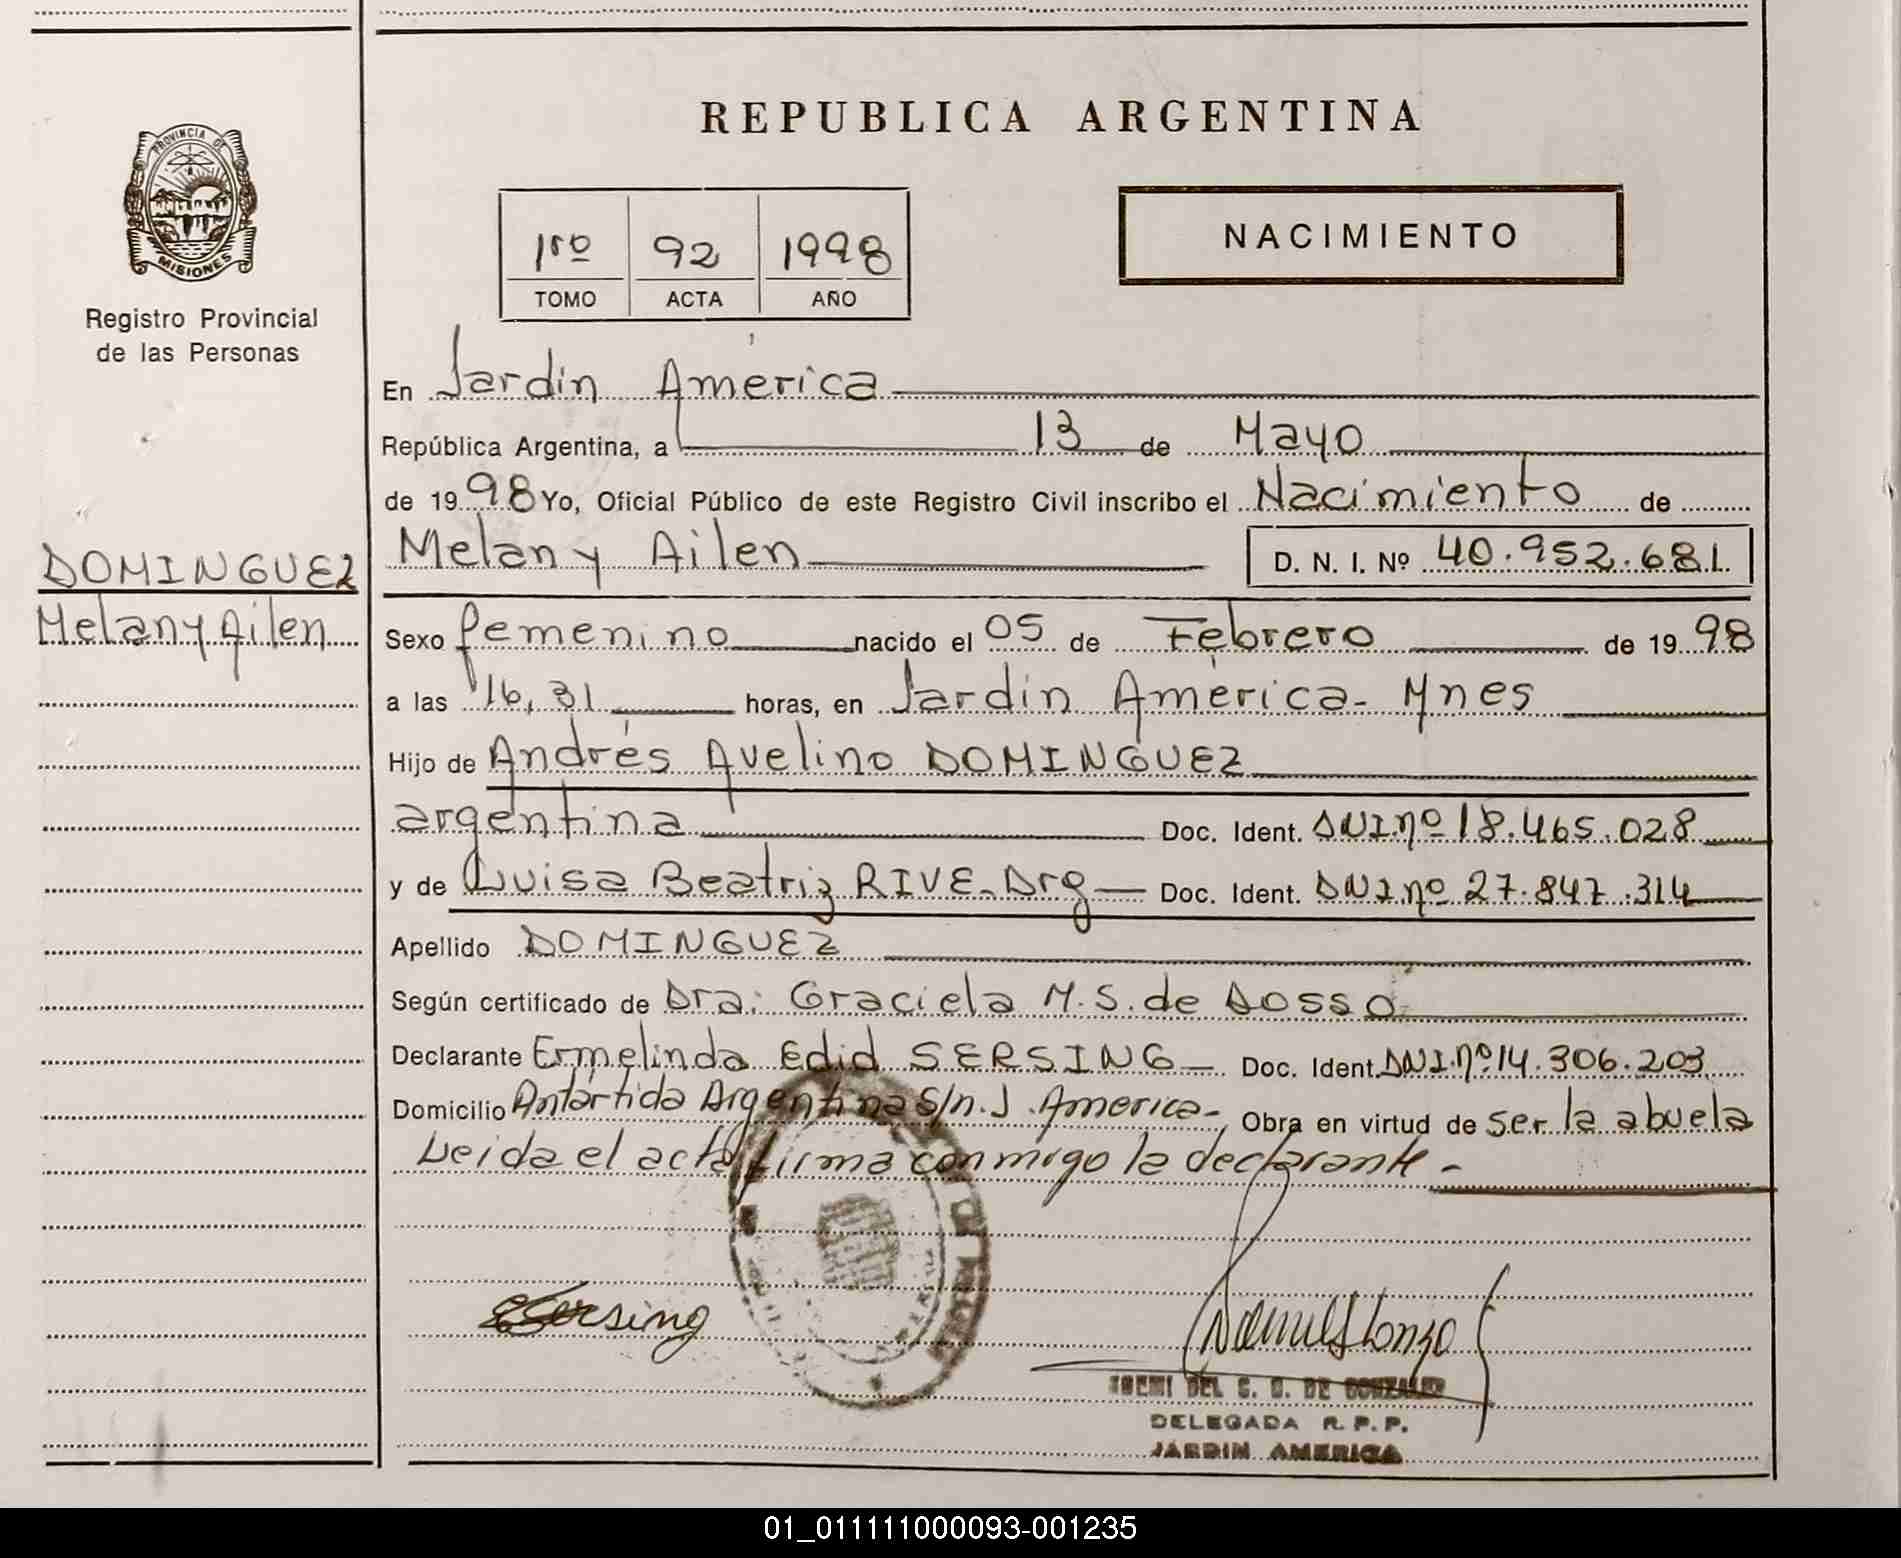 REPUBLICA ARGENTINA
PROVINCIA DE
MISIONES
Registro Provincial
de las Personas
1ro 92 1998
TOMO ACTA AÑO
NACIMIENTO
En Jardín América
República Argentina, a 13 de Mayo
de 1998 Yo, Oficial Público de este Registro Civil inscribo el Nacimiento de
DOMINGUEZ
Melany Ailen
Melany Ailen D. N. I. Nº 40.952.681
Sexo femenino nacido el 05 de Febrero de 1998
a las 16,31 horas, en Jardín América- Mnes
Hijo de Andrés Avelino DOMINGUEZ
argentina Doc. Ident. DNI.nº 18.465.028
y de Luisa Beatriz RIVE-Arg Doc. Ident. DNI.nº 27.847.314
Apellido DOMINGUEZ
Según certificado de Dra: Graciela M.S. de DOSSO
Declarante Ermelinda Edid SERSING Doc. Ident. DNI.nº 14.306.203
Domicilio Antártida Argentina S/n. J. America- Obra en virtud de ser la abuela
Leida el acta firma conmigo la declarante-
Sersing
DEL C. DE GONZALEZ
DELEGADA R.P.P.
JARDIN AMERICA
01_011111000093-001235